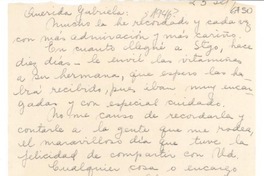 25 Set
Querida Gabriela: ¿1946?
Mucho la he recordado y cada vez
con más admiración y más cariño.
En cuanto llegué a Stgo, hace
diez días - le envié las vitaminas
a su hermana, que espero las ha-
brá recibido, pues iban muy encar-
gadas y con especial cuidado.
No me canso de recordarla y
contarle a la gente que me rodea,
el maravilloso día que tuve la
felicidad de compartir con Ud.
Cualquier cosa o encargo